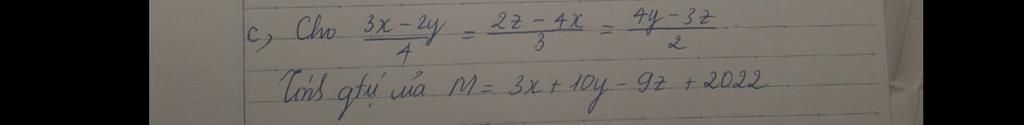 c, Cho (3x - 2y)/4 = (2z - 4x)/3 = (4y - 3z)/2
Tính gtrị của M = 3x + 10y - 9z + 2022